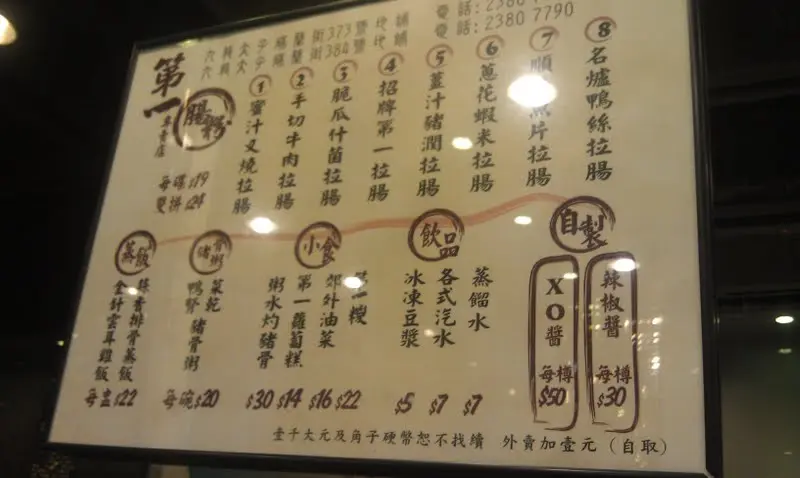 電話: 2380 7790
第一
腸粉
專賣店
每碟$19
雙拼$24
1 蜜汁叉燒拉腸
2 手切牛肉拉腸
3 脆瓜什菌拉腸
4 招牌第一拉腸
5 薑汁豬潤拉腸
6 蔥花蝦米拉腸
7 順 魚片拉腸
8 名爐鴨絲拉腸
蒸飯
排骨蒸飯
金針雲耳雞飯
每盅$22
豬骨粥
菜乾
鴨腎豬骨粥
每碗$20
小食
粥水灼豬骨 $30
第一蘿蔔糕 $14
郊外油菜 $16
第一 $22
飲品
冰凍豆漿 $5
各式汽水 $7
蒸餾水 $7
自製
XO醬 每樽$50
辣椒醬 每樽$30
壹千大元及角子硬幣恕不找續 外賣加壹元(自取)